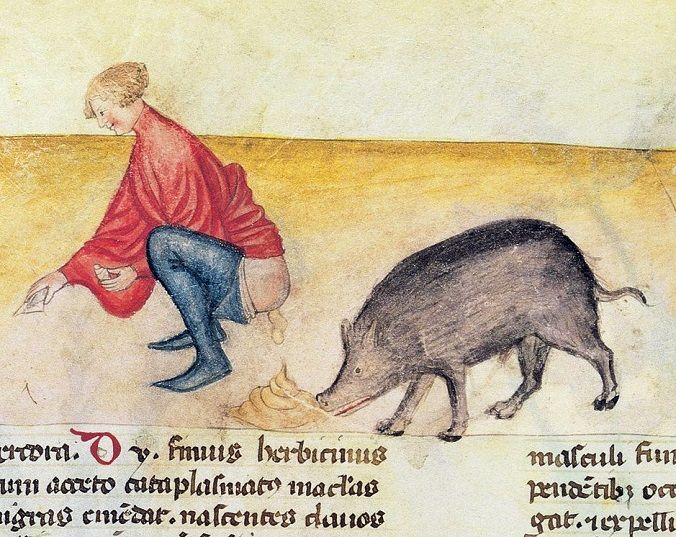 ercora. D y. fimus hercinus
um aceto cataplasmato maclas
nigras emēdat. nascentes clavos
masculi fim
pendētibꝫ occ
gat. ⁊ expelli